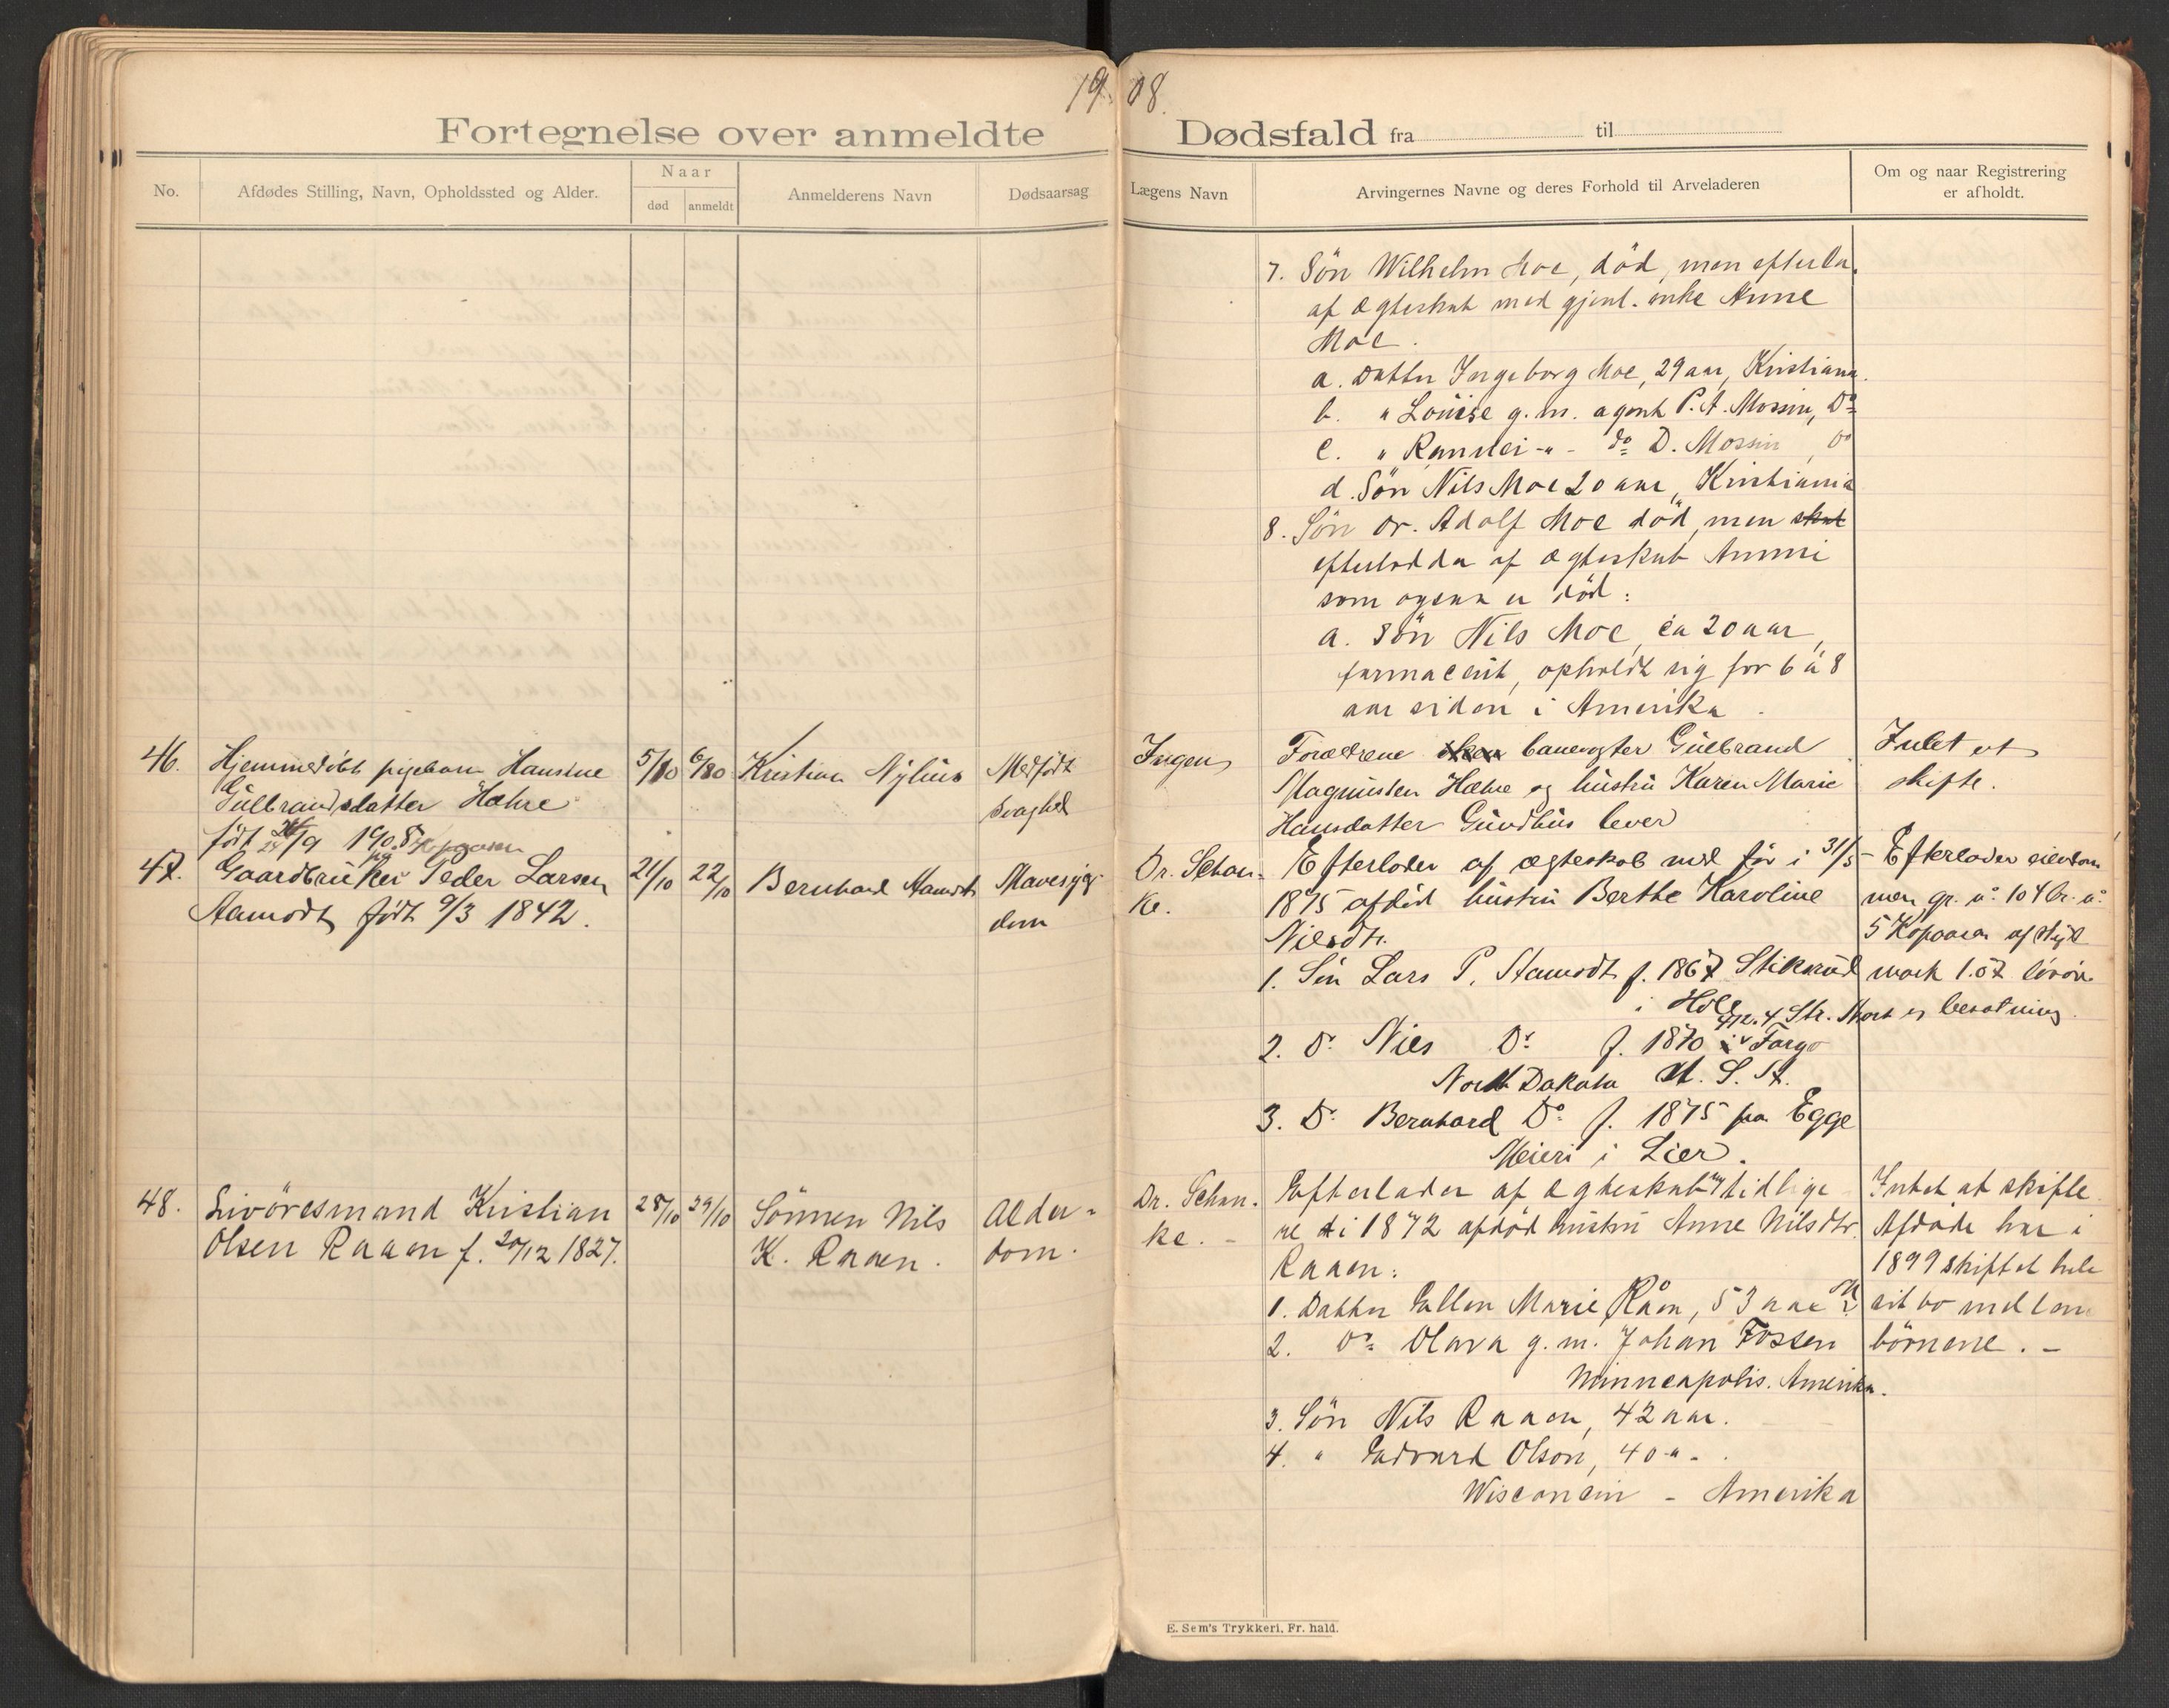 1908.
Fortegnelse over anmeldte Dødsfald fra til
No.
Afdødes Stilling, Navn, Opholdssted og Alder.
Naar
død
anmeldt
Anmelderens Navn
Dødsaarsag
Lægens Navn
Arvingernes Navne og deres Forhold til Arveladeren
Om og naar Registrering
er afholdt.
7. Sön Wilhelm Moe, död, men efterla.
af ægteskab med gjenl. enke Anne
Moe.
a. Datter Ingeborg Moe, 29 aar, Kristiania.
b. " Louise g. m. agent P. A. Mossin, Do
c. " Ragnhei -"- do D. Mossin, Do
d. Sön Nils Moe 20 aar, Kristiania
8. Sön Dr. Adolf Moe död, men
efterlod da af ægteskab Ammi
som ogsaa er död:
a. Sön Nils Moe, ca 20 aar,
farmaceut, opholdt sig for 6 à 8
aar siden i Amerika.
46.
Hjemmedöbt pigebarn Hansine
Gulbrandsdatter Hæhre
födt 24/9 1908
5/10
6/10
Kristian Nylius
Medfödt
svaghed
Ingen
Forældrene banevogter Gulbrand
Magnussen Hæhre og hustru Karen Marie
Hansdatter Gundhus lever
Intet at
skifte.
47.
Gaardbruker Peder Larsen
Aamodt födt 9/3 1842.
21/10
22/10
Bernhard Aamodt
Mavesyg-
dom
Dr. Schan-
ke.
Efterlader af ægteskab med før i 31/5-
1875 afdöd hustru Berthe Karoline
Nilsdtr.
1. Sön Lars P. Aamodt f. 1867 Stiksrud
i Hole
2. Do Nils Do f. 1870 i Fargo
North Dakota U. S. A.
3. Do Bernhard Do f. 1875 paa Egge
Meieri i Lier.
Efterlader eiendom
men gr. no 104 br. no
5 Kopaasen af skyld
mark 1.07 lösöre
gr. 4 Str. Moe es besætning.
48.
Livöresmand Kristian
Olsen Raaen f. 20/12 1827.
28/10
29/10
Sönnen Nils
K. Raaen.
Alder-
dom.
Dr. Schan-
ke. -
Efterlader af ægteskab m tidlige
re i 1872 afdöd hustru Anne Nilsdtr.
Raaen:
1. Datter Ellen Marie Råen, 53 aar
2. Do Olava g. m. Johan Fossen
Minneapolis. Amerika.
3. Sön Nils Raaen, 42 aar.
4. " Edvard Olson, 40 -"-.
Wisconsin - Amerika
Intet at skifte.
Afdöde har i
1899 skiftet hele
sit bo mellem
börnene. -
E. Sem's Trykkeri, Fr. hald.